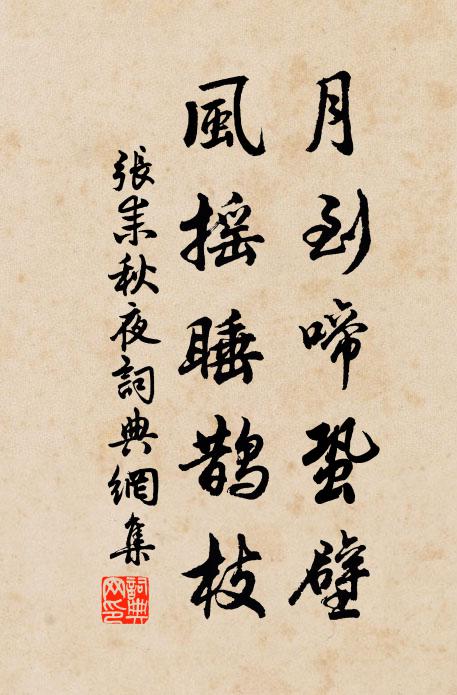 月到啼蛩壁
風摇睡鵲枝
張耒秋夜詞典網集
詞典網印